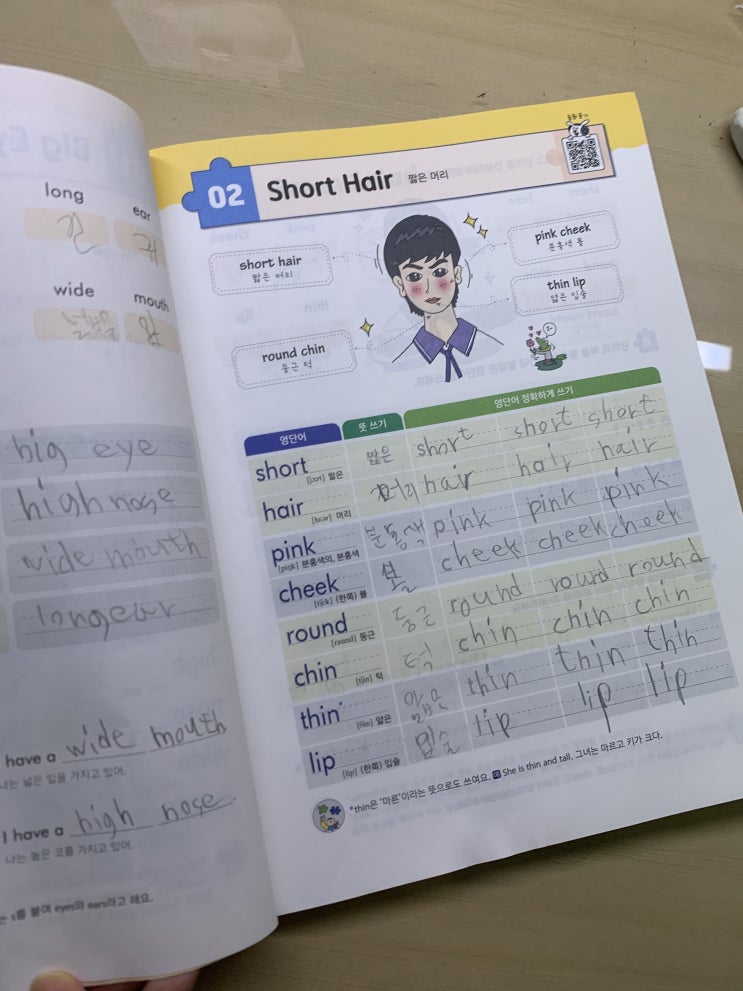 long ear
긴 귀
wide mouth
넓은 입
big eye
high nose
wide mouth
long ear
have a wide mouth
나는 넓은 입을 가지고 있어.
I have a high nose.
나는 높은 코를 가지고 있어.
s를 붙여 eyes와 ears라고 해요.
02 Short Hair 짧은 머리
short hair
짧은 머리
pink cheek
분홍색 볼
thin lip
얇은 입술
round chin
둥근 턱
영단어 뜻 쓰기 영단어 정확하게 쓰기
short 짧은 short short short
[ʃɔːrt] 짧은
hair 머리 hair hair hair
[hɛər] 머리
pink 분홍색 pink pink pink
[piŋk] 분홍색의, 분홍색
cheek 볼 cheek cheek cheek
[tʃiːk] (한쪽) 볼
round 둥근 round round round
[raund] 둥근
chin 턱 chin chin chin
[tʃin] 턱
thin* 얇은 thin thin thin
[θin] 얇은
lip 입술 lip lip lip
[lip] (한쪽) 입술
*thin은 '마른'이라는 뜻으로도 쓰여요. 예 She is thin and tall. 그녀는 마르고 키가 크다.